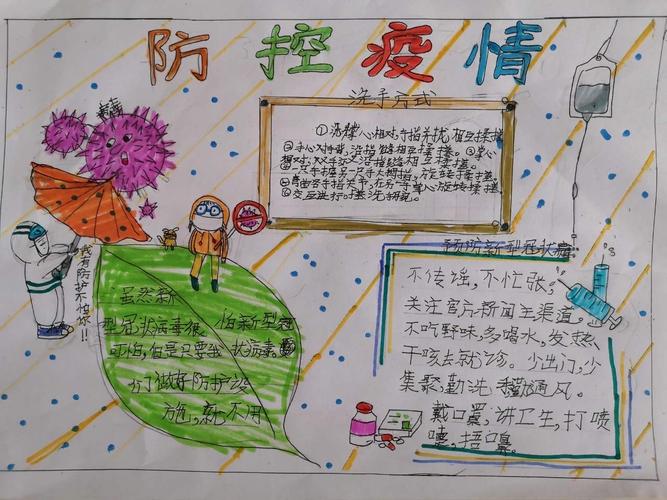 防控疫情
洗手方式
①洗 掌心相对手指并拢相互揉搓
②手心对手背,沿指缝相互揉搓。③掌心
相对,双手交叉沿指缝相互揉搓。
④一手握另一只手大拇指,旋转揉搓。
⑤弯曲各手指关节,在另一手掌心旋转揉搓
⑥交互进行。搓洗手腕。
病毒
我有防护不怕你!!
虽然新
型冠状病毒很 怕新型冠
可怕,但是只要我 状病毒
们做好防护设
施,就不用
预防新型冠状病
不传谣,不忙张,
关注官方新闻主渠道。
不吃野味,多喝水,发热
干咳去就诊。少出门,少
集聚,勤洗手 通风。
戴口罩,讲卫生,打喷
嚏,捂口鼻。